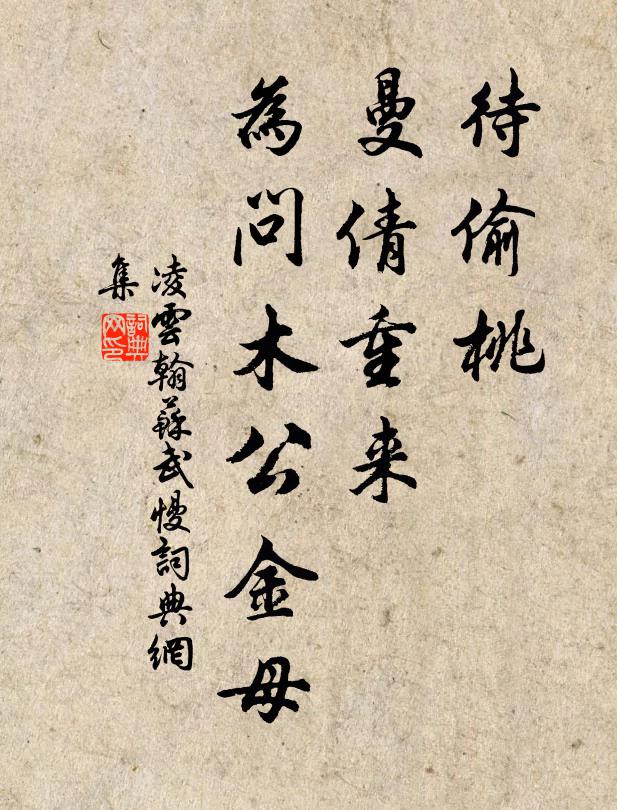 待偷桃
曼倩重来
為問木公金母
凌雲翰蘇武慢詞典網
集
詞典
网印